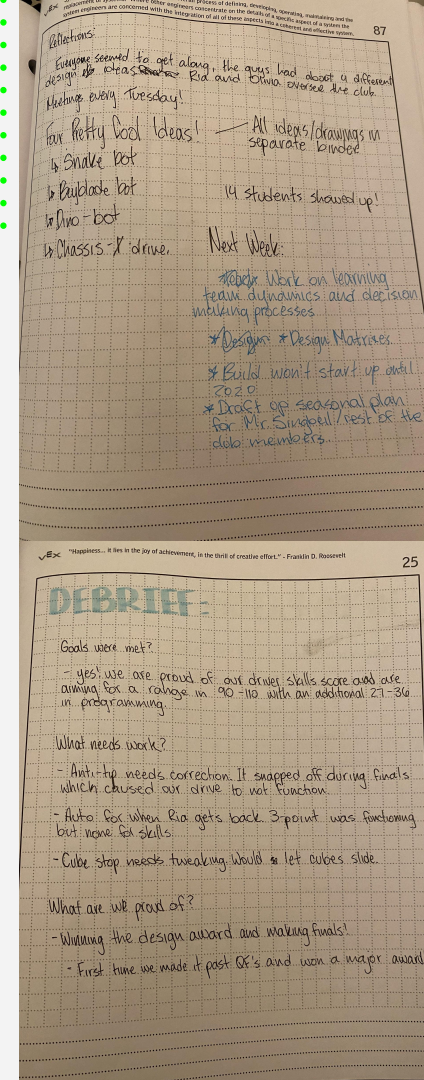 replacement of systems. Where other engineers concentrate on the details of a specific aspect of a system the
system engineers are concerned with the integration of all of these aspects into a coherent and effective system.
87
Reflections:
Everyone seemed to get along, the guys had about 4 different
design ideas Ria and Olivia oversee the club.
Meeting every Tuesday!
Four Pretty Cool Ideas! — All ideas/drawings in
separate binder
↳ Snake bot
↳ Beyblade bot
14 students showed up!
↳ Dino-bot
↳ Chassis-X drive.
Next Week:
Work on learning
team dynamics and decision
making processes
* Design Matrixes.
* Build won't start up until
2020
* Draft up seasonal plan
for Mr. /rest of the
club members.
VEX "Happiness... it lies in the joy of achievement, in the thrill of creative effort." - Franklin D. Roosevelt
25
DEBRIEF:
Goals were met?
- yes! we are proud of our driver skills score and are
aiming for a range in 90-110 with an additional 27-36
in programming.
What needs work?
- Anti-tip needs correction. It snapped off during finals
which caused our drive to not function.
- Auto for when Ria gets back. 3-point was functioning
but none for skills
- Cube stop needs tweaking. Would let cubes slide.
What are we proud of?
- Winning the design award and making finals!
- First time we made it past QF's and won a major award